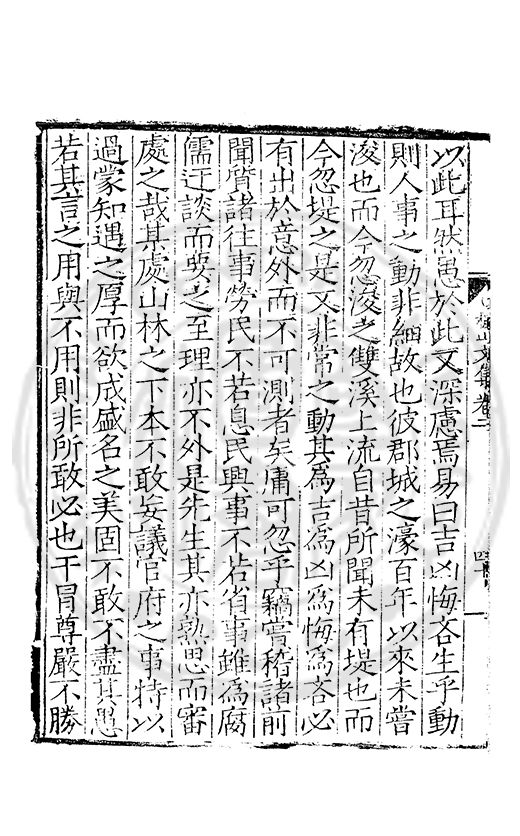 以此耳然愚於此又深慮焉易曰吉凶悔吝生乎動
則人事之動非細故也彼郡城之濠百年以來未嘗
浚也而今忽浚之雙溪上流自昔所聞未有堤也而
今忽堤之是又非常之動其為吉為凶為悔為吝必
有出於意外而不可測者矣庸可忽乎竊嘗稽諸前
聞質諸往事勞民不若息民興事不若省事雖為腐
儒迂談而要之至理亦不外是先生其亦熟思而審
處之哉某處山林之下本不敢妄議官府之事特以
過蒙知遇之厚而欲成盛名之美固不敢不盡其愚
若其言之用與不用則非所敢必也干冒尊嚴不勝
山文集卷二
四